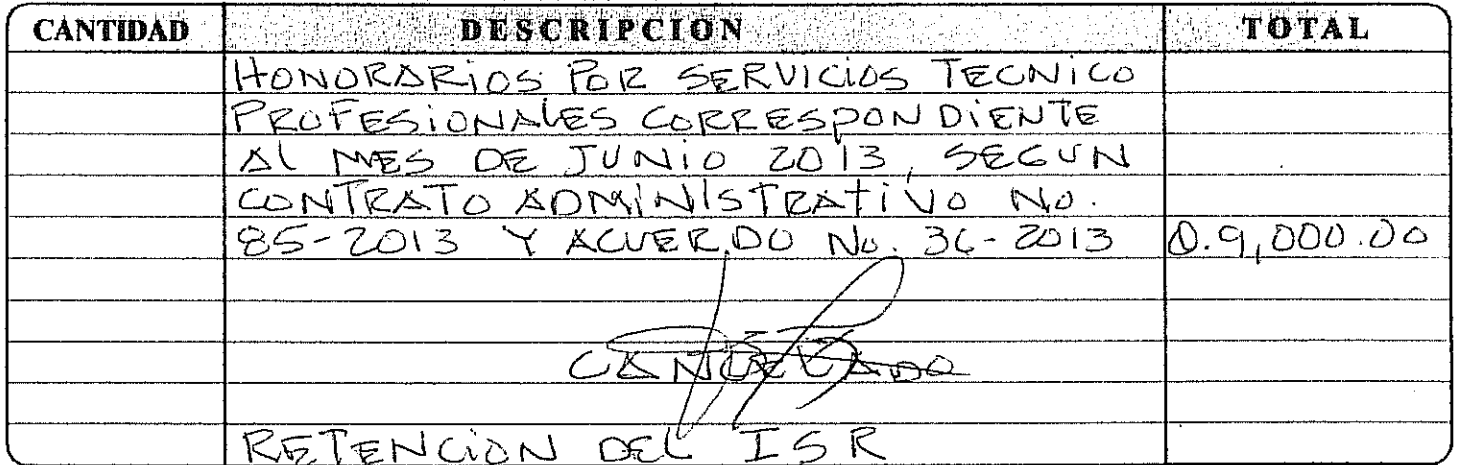 CANTIDAD DESCRIPCION TOTAL
HONORARIOS POR SERVICIOS TECNICO
PROFESIONALES CORRESPONDIENTE
AL MES DE JUNIO 2013, SEGUN
CONTRATO ADMINISTRATIVO No.
85-2013 Y ACUERDO No. 36-2013 Q.9,000.00
CANCELADO
RETENCION DEL ISR